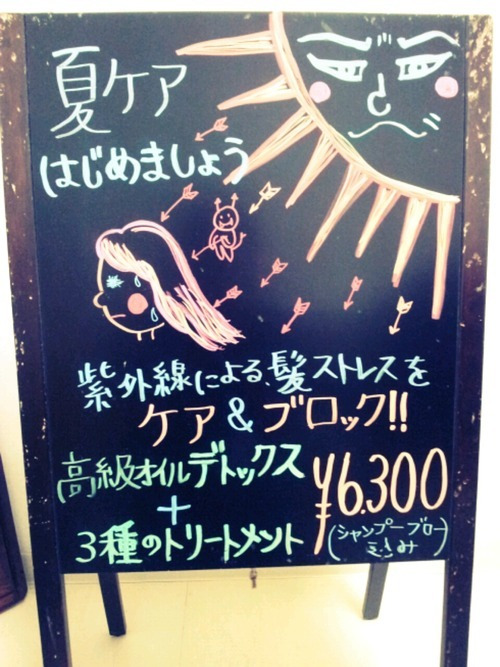 夏ケア
はじめましょう
紫外線による、髪ストレスを
ケア&ブロック!!
高級オイルデトックス
+
3種のトリートメント
¥6.300
(シャンプーブロー
込み)